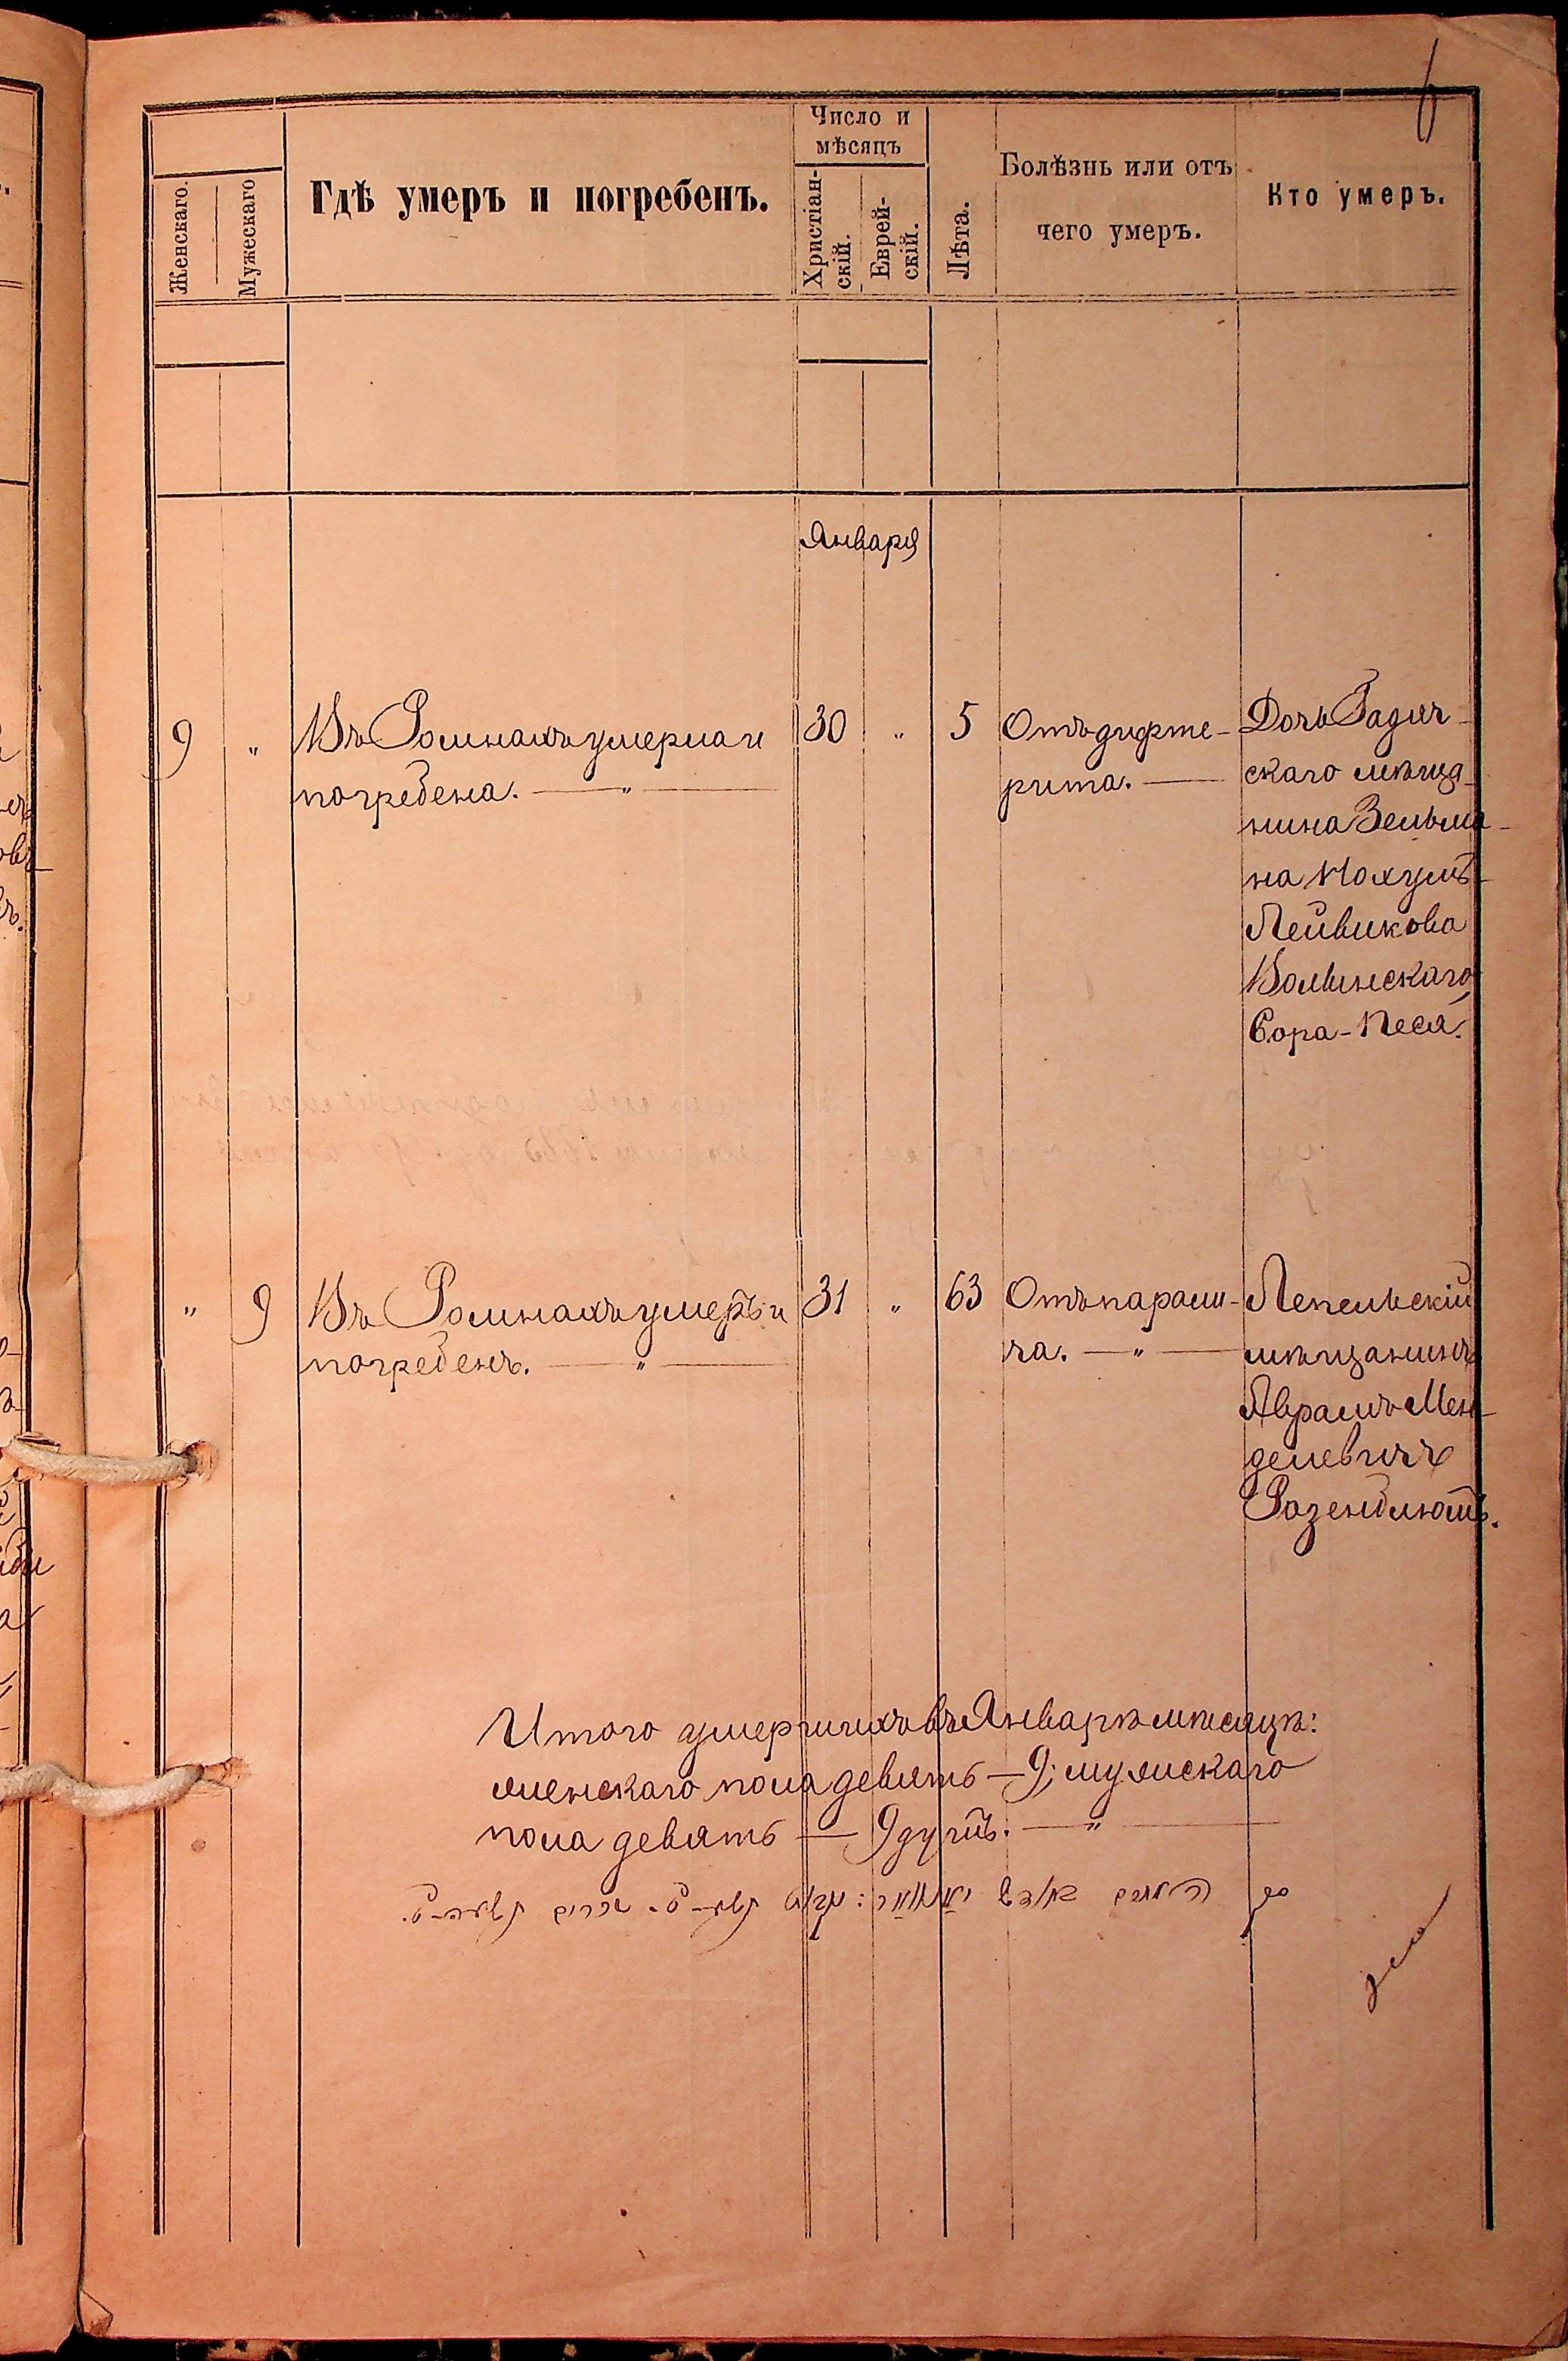 Женскаго.
Мужескаго
Гдѣ умеръ и погребенъ.
Число и
мѣсяцъ
Христіан-
скій.
Еврей-
скій.
Лѣта.
Болѣзнь или отъ
чего умеръ.
Кто умеръ.
Января
9 " Въ Ромнахъ умерла и 30 " 5 Отъ дифте- Дочь Гадяч-
погребена. — " — рита. — скаго мѣща-
нина Зельма-
на Нохумъ-
Лейвикова
Волинскаго
Сора-Песя.
" 9 Въ Ромнахъ умеръ и 31 " 63 Отъ парали- Лепельскій
погребенъ. — " — ча. — " — мѣщанинъ
Авраамъ Мен-
делевичъ
Розенблютъ.
Итого умершихъ въ Январѣ мѣсяцѣ:
женскаго пола девять — 9; мужскаго
пола девять — 9 душъ. — " —